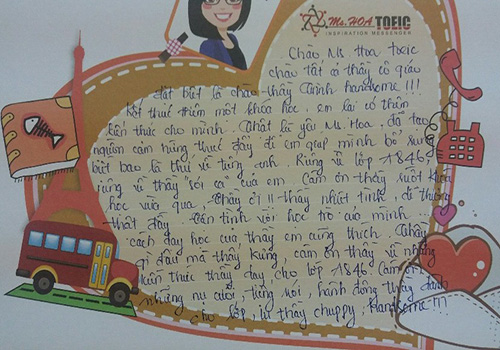 Ms. HOA TOEIC
INSPIRATION MESSENGER
Chào Ms Hoa toeic
chào tất cả thầy cô giáo
đặt biệt là chào thầy Trịnh handsome !!!
Kết thúc thêm một khóa học, em lại có thêm
kiến thức cho mình. Nhất là yêu Ms. Hoa đã tạo
nguồn cảm hứng thúc đẩy để em giúp mình bổ sung
biết bao là thứ về tiếng anh. Riêng về lớp 1846
riêng về thầy "sói ca" của em. Cảm ơn thầy suốt khóa
học vừa qua, thầy ơi !! thầy nhút tính, dễ thương
thật đấy. Cần tình với học trò của mình
cách dạy học của thầy em cũng thích. Thầy
gì đâu mà thấy cưng, cảm ơn thầy về những
kiến thức thầy dạy cho lớp 1846. Cảm ơn
những nụ cười, tiếng nói, hành động thầy dành
cho lớp, từ thầy chuppy, Handsome !!!